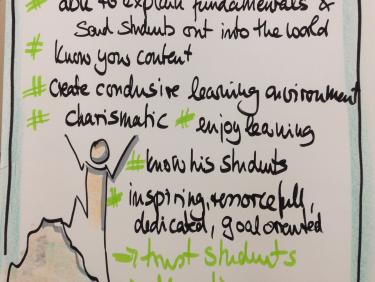 # able to explain fundamentals &
send students out into the world
# know your content
# create condusive learning environment
# charismatic # enjoy learning
# know his students
# inspiring, resourcefull,
dedicated, goal oriented
→ trust students